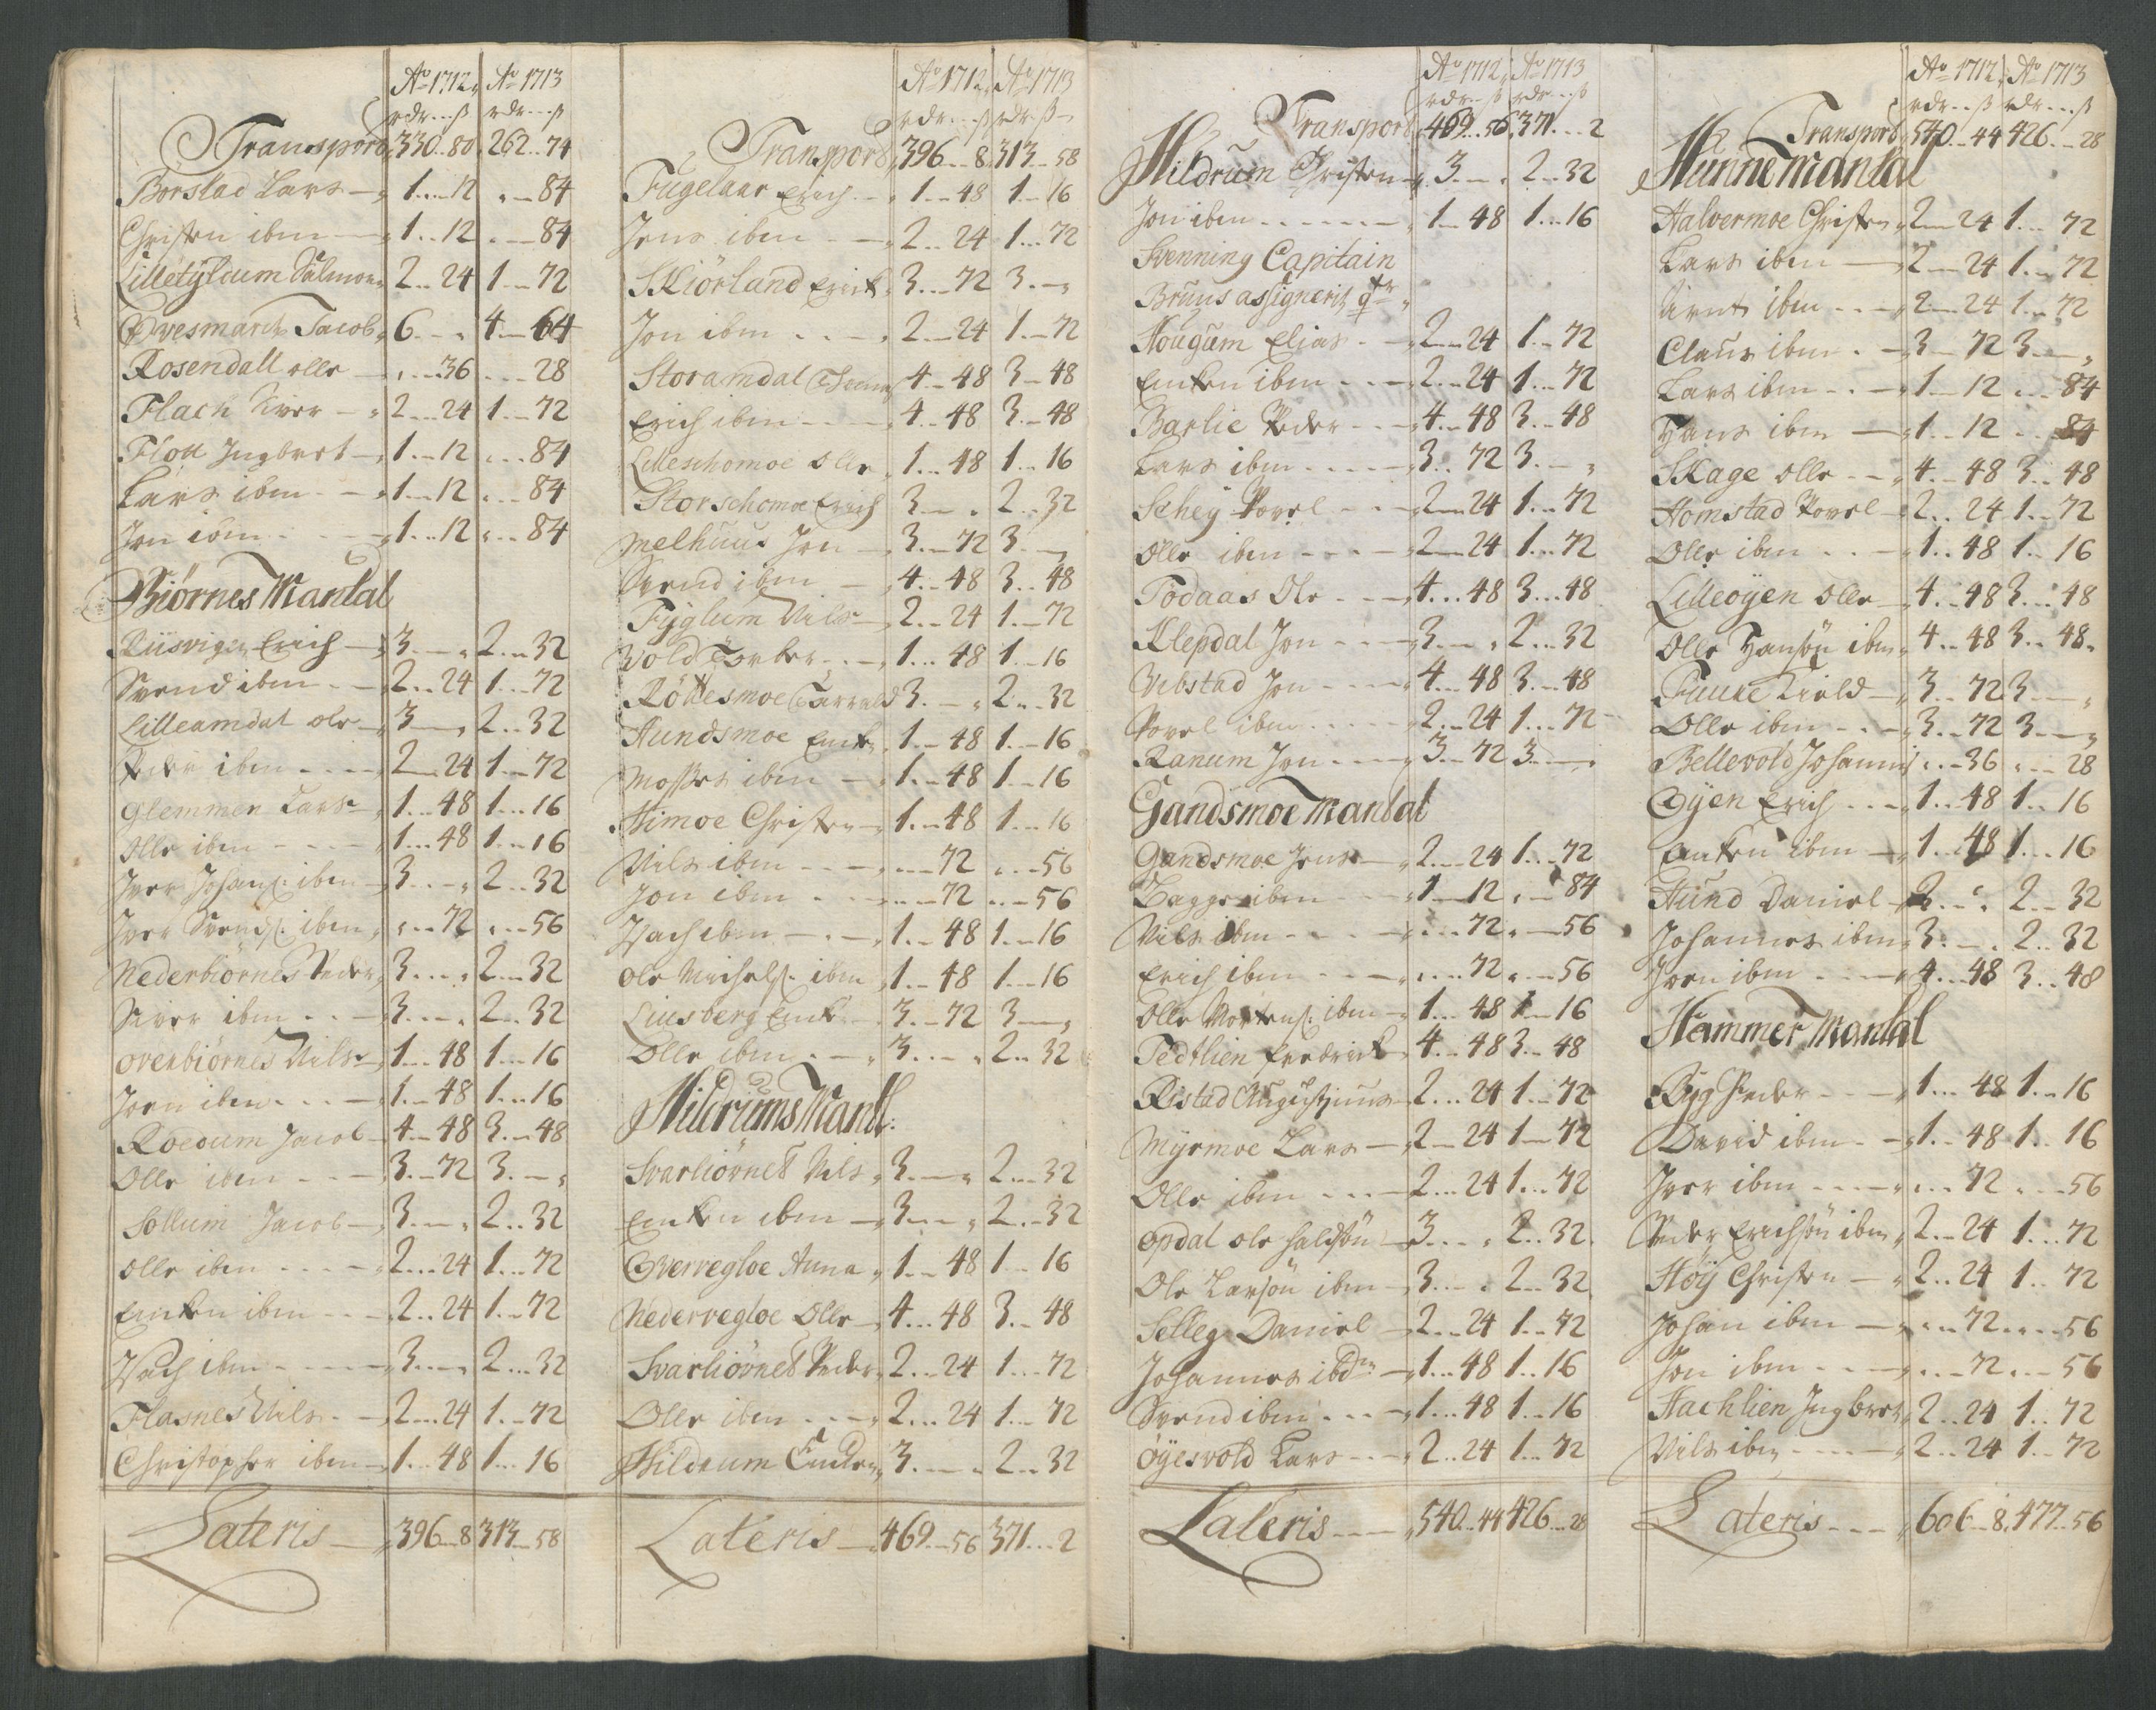 Ao 1712. Ao 1713
rdr...ß rdr...ß
Transport 330..80. 262..74
Borstad Lars 1...12 ...84
Christen ibm 1..12 ...84
Lilletÿldum Salmon 2..24 1..72
Øvesmarck Jacob 6... 4..64
Rosendall olle ...36 ...28
Flach Siver 2...24 1...72
Flott Ingbret 1...12 ...84
Lars ibm 1...12 ...84
Jon ibm 1...12 ...84
Biörnes Mantal
Riisvigen Erich 3... 2...32
Svend ibm 2...24 1...72
Lilleamdal ole 3... 2...32
Peder ibm 2...24 1...72
Glemmen Lars 1...48 1...16
Olle ibm 1...48 1...16
Iver Johanß: ibm 3... 2...32
Iver Svendß: ibm ...72 ...56
Nederbiörnes Peder 3... 2...32
Siver ibm 3... 2...32
overbiörnes Nils 1...48 1...16
Joen ibm 1...48 1...16
Roedum Jacob 4...48 3...48
Olle ibm 3...72 3...
Sollum Jacob 3... 2...32
Olle ibm 2...24 1...72
Enken ibm 2...24 1...72
Isach ibm 3... 2...32
Flasnes Nils 2...24 1...72
Christopher ibm 1...48 1...16
Lateris 396..8 313..58
Ao 1712. Ao 1713
rdr...ß rdr...ß
Transport 396..8 313..58
Fugelaar Erich 1...48 1...16
Jens ibm 2...24 1...72
Skiörland Erick 3...72 3...
Jon ibm 2...24 1...72
Storamdal 4...48 3...48
Erich ibm 4...48 3...48
Lilleschomoe Olle 1...48 1...16
Storschomoe Erich 3... 2...32
Melhuus Jon 3...72 3...
Svend ibm 4...48 3...48
Fÿglum Nils 2...24 1...72
Vold Torber 1...48 1...16
Röttesmoe Tarrald 3... 2...32
Hundsmoe Enke 1...48 1...16
Moßes ibm 1...48 1...16
Himoe Christen 1...48 1...16
Nils ibm ...72 ...56
Jon ibm ...72 ...56
Isach ibm 1...48 1...16
Ole Michelß: ibm 1...48 1...16
Liusberg Enk 3...72 3...
Olle ibm 3... 2...32
Mildrums Mantl:
Svarliövnes Nils 3... 2...32
Enken ibm 3... 2...32
Overvegloe Anna 1...48 1...16
Nedervegloe Olle 4...48 3...48
Svarliövnes Peder 2...24 1...72
Olle ibm 2...24 1...72
Mildrum Enken 3... 2...32
Lateris 469...56 371...2
Ao 1712. Ao 1713
rdr...ß rdr...ß
Transport 469..56 371...2
Mildrum Christen 3... 2...32
Jon ibm 1...48 1...16
Svenning Capitain
Bruus assignerit qtr
Hougum Elias 2...24 1...72
Enken ibm 2...24 1...72
Barlie Peder 4...48 3...48
Lars ibm 3...72 3...
Schey Povel 2...24 1...72
Olle ibm 2...24 1...72
Todaas Ole 4...48 3...48
Klepdal Jon 3... 2...32
Vibstad Jon 4...48 3...48
Povel ibm 2...24 1...72
Ranum Jon 3...72 3...
Gandsmoe Mantal
Gandsmoe Jens 2...24 1...72
Bagge ibm 1...12 ...84
Nils ibm ...72 ...56
Erich ibm ...72 ...56
Olle Mortenß: ibm 1...48 1...16
Tedtlien Fredrick 4...48 3...48
Ristad Augustinus 2...24 1...72
Mÿrmoe Lars 2...24 1...72
Olle ibm 2...24 1...72
Opdal ole haldsön 3... 2...32
Ole Larsön ibm 3... 2...32
Selleg Daniel 2...24 1...72
Johannes ibdm 1...48 1...16
Svend ibm 1...48 1...16
Öÿesvold Lars 2...24 1...72
Lateris 540..44 426...28
Ao 1712. Ao 1713
rdr...ß rdr...ß
Transport 540..44 426...28
Hunne mantal
Halvermoe Christen 2...24 1...72
Lars ibm 2...24 1...72
Arnt ibm 2...24 1...72
Claus ibm 3...72 3...
Lars ibm 1...12 ...84
Hans ibm 1...12 ...84
Skage olle 4...48 3...48
Homstad Povel 2...24 1...72
Olle ibm 1...48 1...16
Lilleöÿen olle 4...48 3...48
Olle Hansön ibm 4...48 3...48
Fuure Kield 3...72 3...
Olle ibm 3...72 3...
Bellevold Johannis ...36 ...28
Öÿen Erich 1...48 1...16
Enken ibm 1...48 1...16
Hund Daniel 3... 2...32
Johannes ibm 3... 2...32
Joen ibm 4...48 3...48
Hammer Mantal
Rÿg Peder 1...48 1...16
David ibm 1...48 1...16
Iver ibm ...72 ...56
Peder Erichsön ibm 2...24 1...72
Höÿ Christen 2...24 1...72
Johan ibm ...72 ...56
Jon ibm ...72 ...56
Hachlien Ingbret 2...24 1...72
Nils ibm 2...24 1...72
Lateris 606..8. 477..56